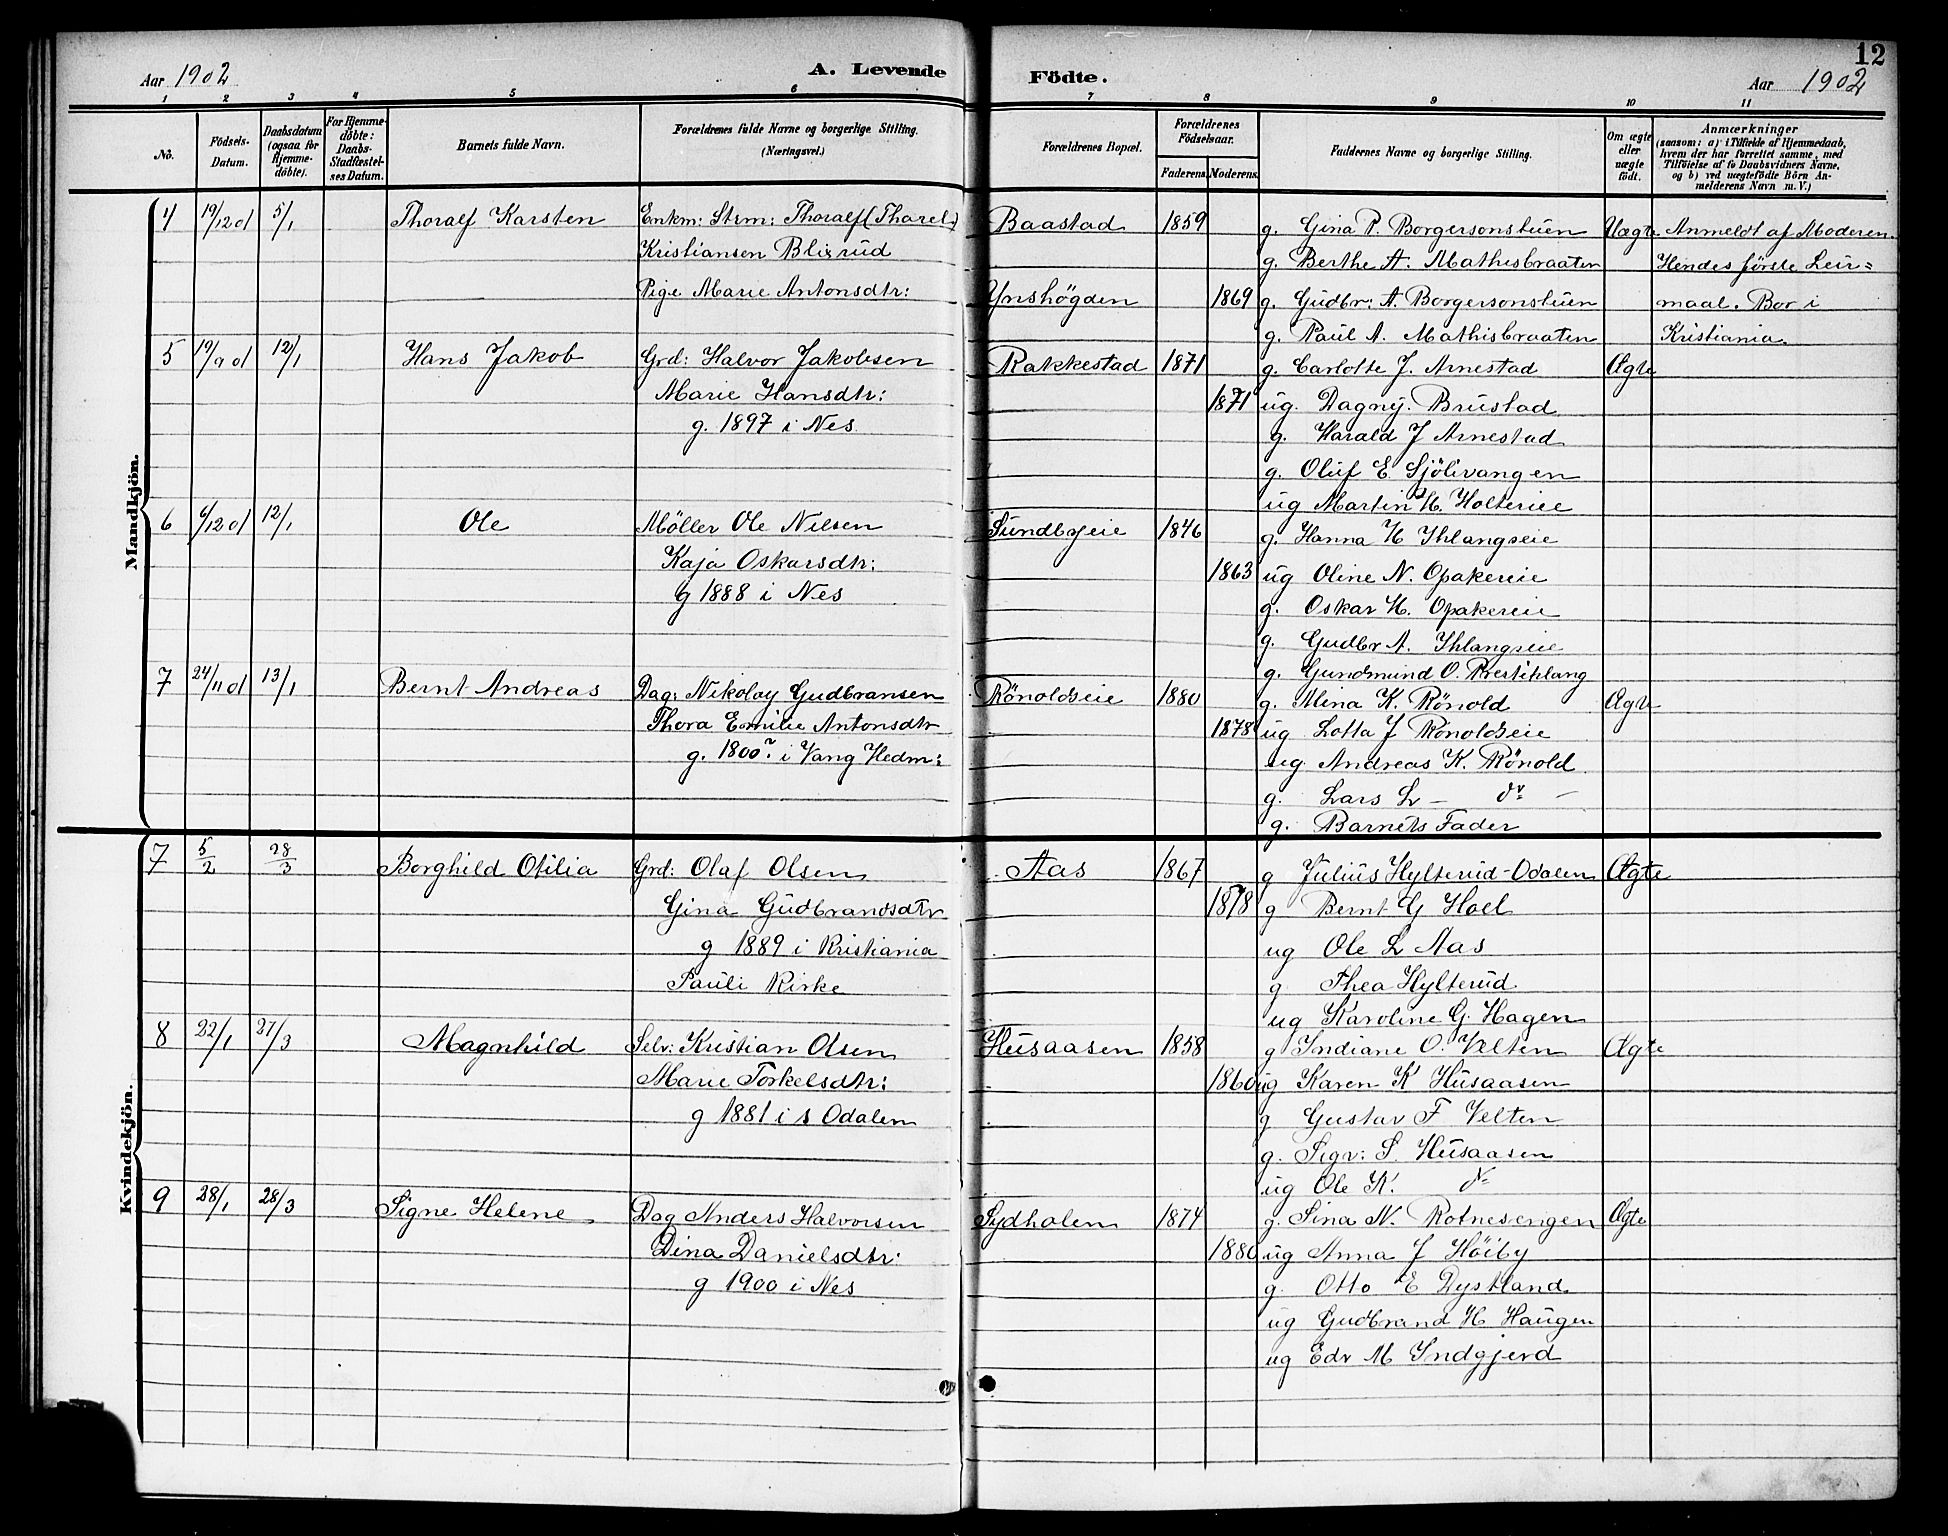 12
Aar 1902
A. Levende
Födte.
Aar 1902
1 2 3 4 5 6 7 8 9 10 11
No.
Födsels-Datum.
Daabsdatum (ogsaa for Hjemme-döbte).
For Hjemme-döbte: Daabs-Stadfæstel-ses Datum.
Barnets fulde Navn.
Forældrenes fulde Navne og borgerlige Stilling. (Næringsvei.)
Forældrenes Bopæl.
Forældrenes Födselsaar.
Faderens. Moderens.
Faddernes Navne og borgerlige Stilling.
Om ægte eller uægte födt.
Anmærkninger (saasom: a) i Tilfælde af Hjemmedaab, hvem der har forrettet samme, med Tilföielse af to Daabsvidners Navne, og b) ved uægtefödte Börn An-melderens Navn m. V.)
Mandkjön.
4 19/12 01 5/1 Thoralf Karsten Enkm: Strm: Thoralf (Tharel) Baastad 1859 g. Gina P. Borgersonstuen Uægte Anmeldt af Moderen.
Kristiansen Blixrud g. Berthe A. Mathisbraaten Hendes første Leir=
Pige Marie Antonsdtr: Ynshögden 1869 g. Gudbr: A. Borgersonstuen maal. Bor i
g. Paul A. Mathisbraaten Kristiania.
5 19/9 01 12/1 Hans Jakob Grd: Halvor Jakobsen Rakkestad 1871 g. Carlotte J. Arnestad Ægte
Marie Hansdtr: 1871 ug. Dagny. Brustad
g. 1897 i Nes. g. Harald J Arnestad
g. Oluf E. Sjölivangen
ug Martin H. Holtereie
6 6/12 01 12/1 Ole Möller Ole Nilsen Sundbyeie 1846 g. Hanna H Ihlangseie
Kaja Oskarsdtr: 1863 ug Oline N. Opakereie
g 1888 i Nes g. Oskar H. Opakereie
g. Gudbr A. Ihlangseie
g. Gundmund O. Prestihlang
7 24/11 01 13/1 Bernt Andreas Dag: Nikolay Gudbransen Rönoldseie 1880 g. Mina K. Rönold Ægte
Thora Emilie Antonsdtr 1878 ug Lotta J Rönoldseie
g. 1800? i Vang Hedm: ug. Andreas K. Rönold
g. Lars L — do —
g. Barnets Fader
Kvindekjön.
7 5/2 28/3 Borghild Otilia Grd: Olaf Olsen Aas 1867 g Julius Hylterud-Odalen Ægte
Gina Gudbrandsdtr 1878 g Bernt G Hoel
g 1889 i Kristiania ug Ole L Aas
Pauli Kirke g Thea Hylterud
ug Karoline G. Hagen
8 22/1 27/3 Magnhild Selv: Kristian Olsen Husaasen 1858 g Indiane O. Velten Ægte
Marie Torkelsdtr: 1860 ug Karen K Husaasen
g 1881 i s Odalen g Gustav F Velten
g. Sigv: S. Husaasen
ug Ole K. do
9 28/1 28/3 Signe Helene Dag Anders Halvorsen Sydholen 1874 g. Sina N. Rotnesengen Ægte
Dina Danielsdtr: 1880 ug Anna J Höiby
g 1900 i Nes g. Otto E Dystland
ug Gudbrand H Haugen
ug Edv M Indgjerd